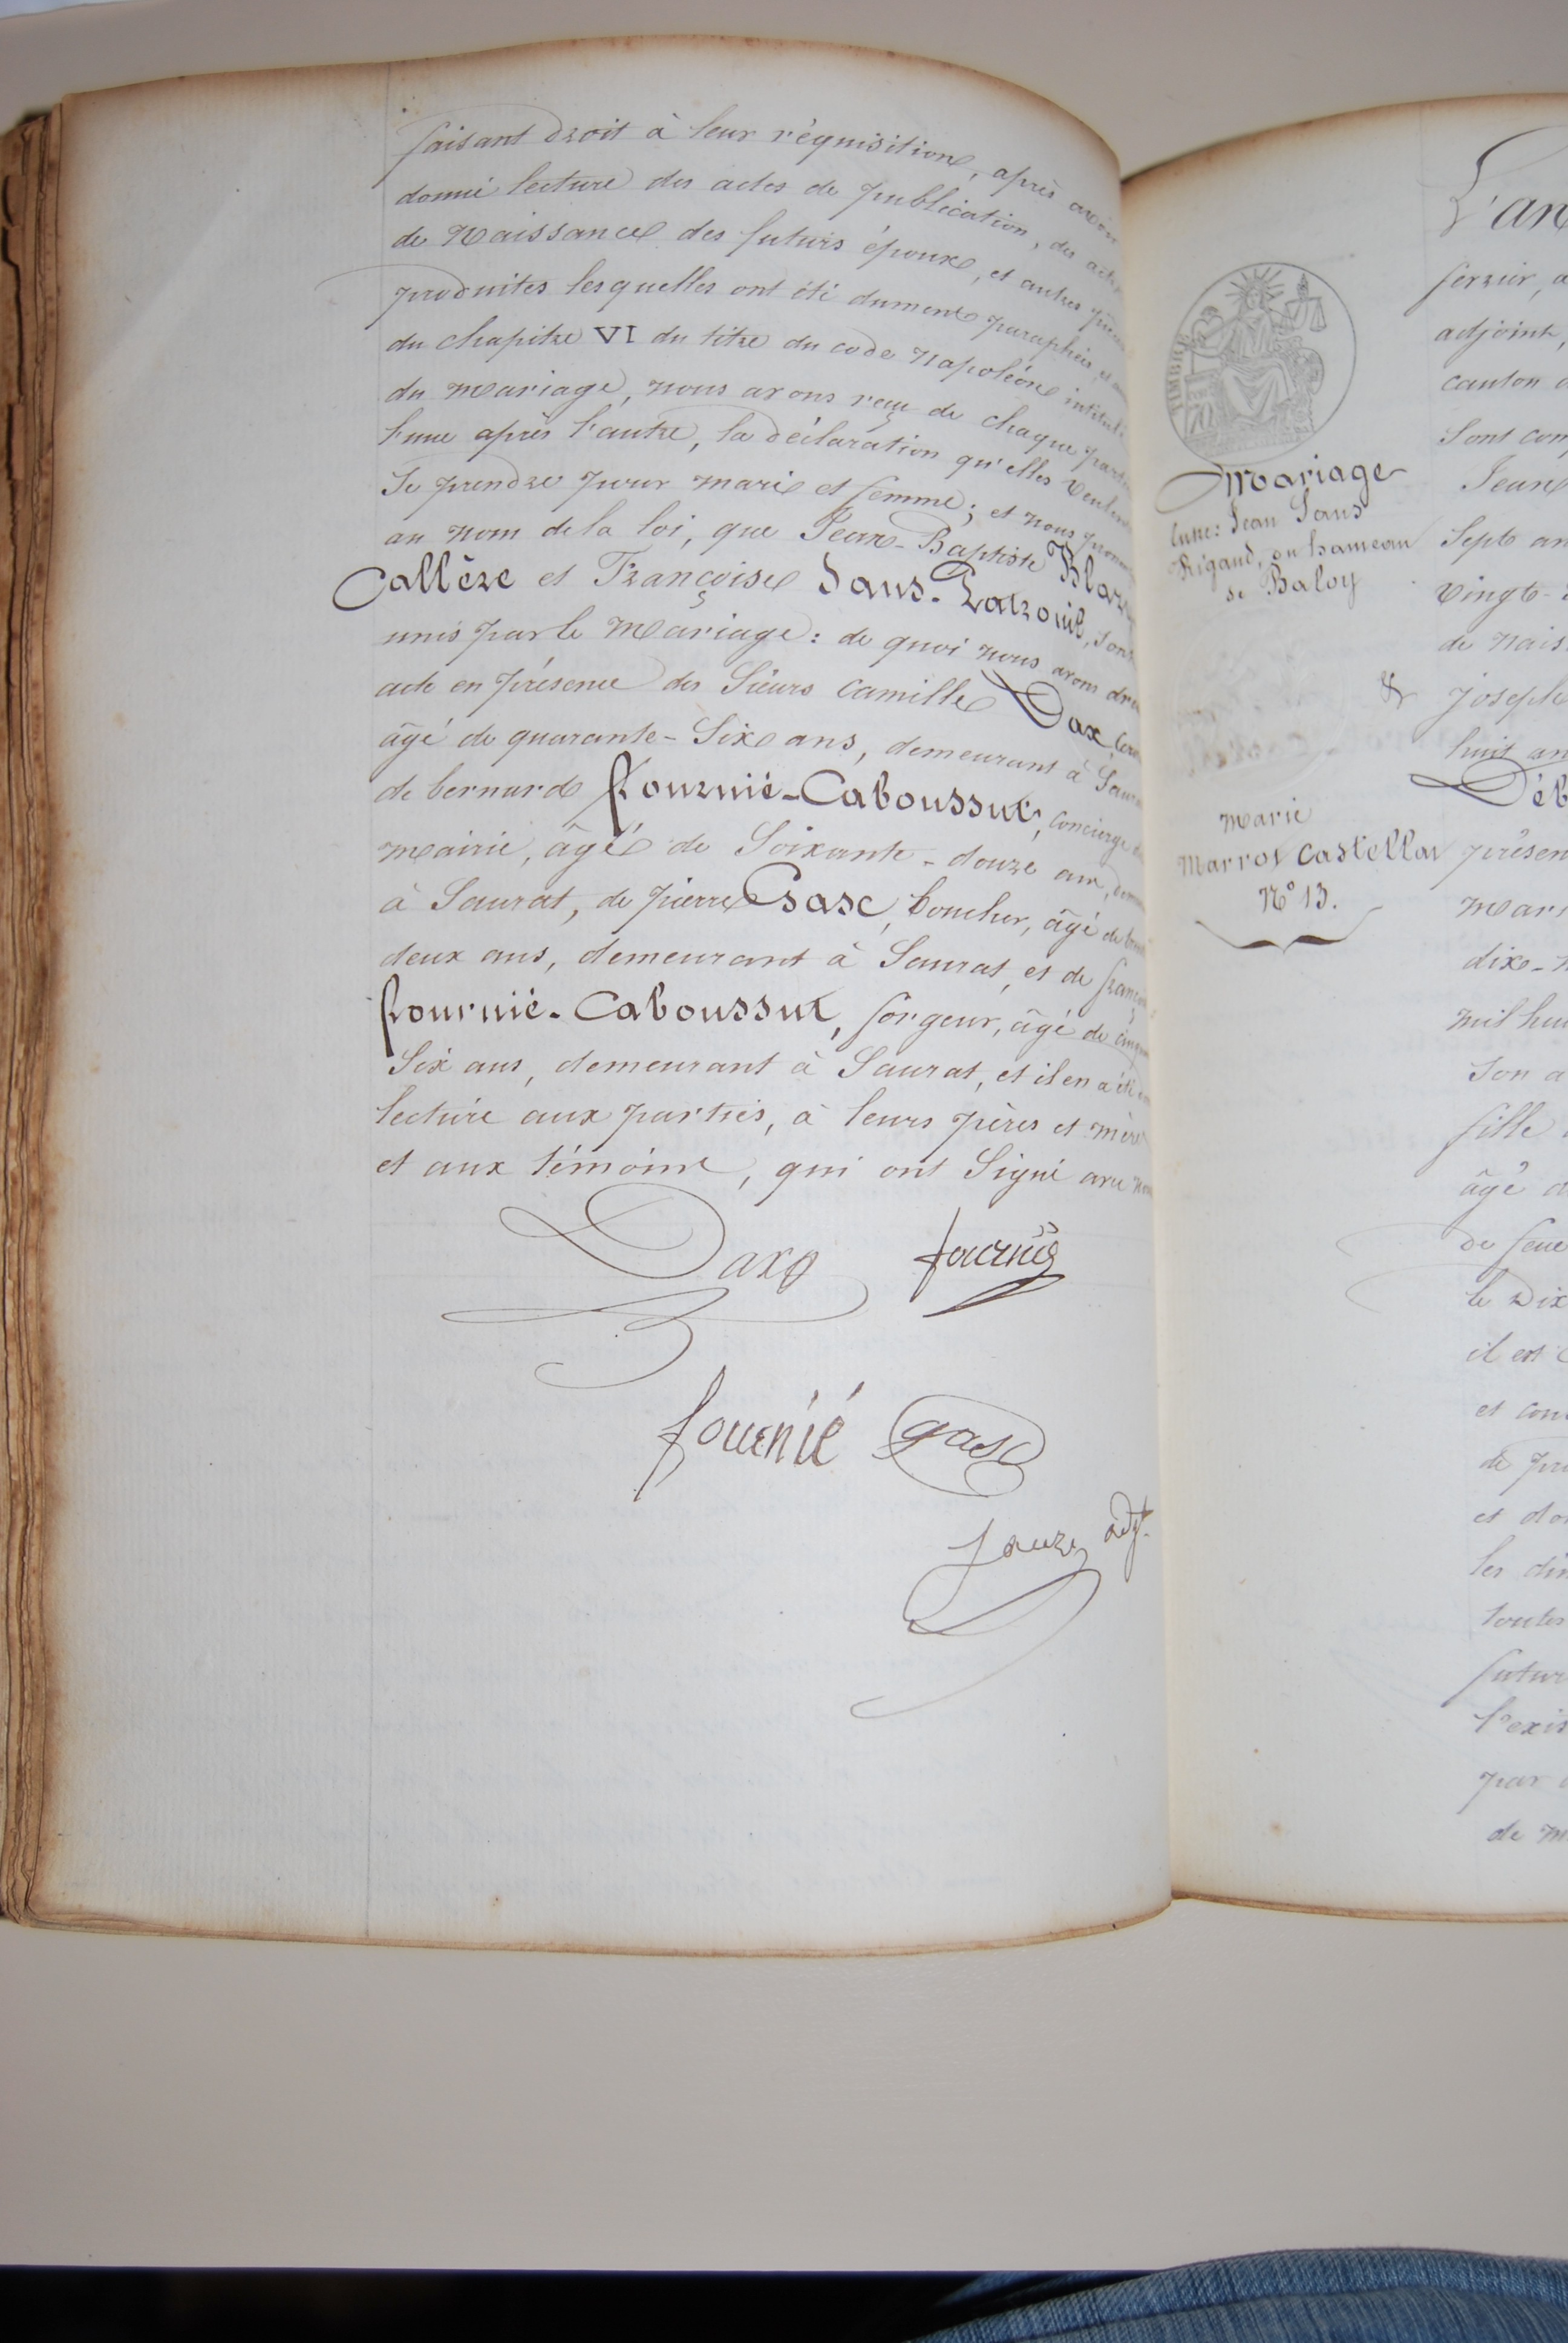 faisant droit à leur réquisition, après avoir
donné lecture des actes de publication, des actes
de Naissance des futurs époux, et autres pièces
produites lesquelles ont été dument paraphées, et
du chapitre VI du titre du code Napoléon intitulé
du mariage, nous avons reçu de chaque partie
l'une après l'autre, la déclaration qu'elles veulent
Se prendre pour mari et femme; et nous
au nom de la loi, que Jean-Baptiste Blazy
Callèze et Françoise Sans-Latrouil, sont
unis par le Mariage: de quoi nous avons
acte en présence des Sieurs Camille Dax,
âgé de quarante-Six ans, demeurant à Saurat
de bernard fournié-Caboussut, concierge
mairie, âgé de Soixante-douze ans,
à Saurat, de pierre Gasc, boucher, âgé de
deux ans, demeurant à Saurat, et de françois
fournié-Caboussut, forgeur, âgé de
Six ans, demeurant à Saurat, et il en a été
lecture aux parties, à leurs pères et mères
et aux témoins, qui ont Signé avec nous
Dax fournié
fournié gasc
adjt.
TIMBRE
Mariage
Entre: Jean Sans
Rigaud, du hameau
de Baloy
&
marie
Marrot Castellat
N° 13.
L'an
adjoint,
canton
Sont
Jean
Sept
vingt-
de
joseph
huit
mari
dixe-
mil
Son
fille
âgé
de
le Dix
il est
et
de
et
les
toutes
futur
par
de